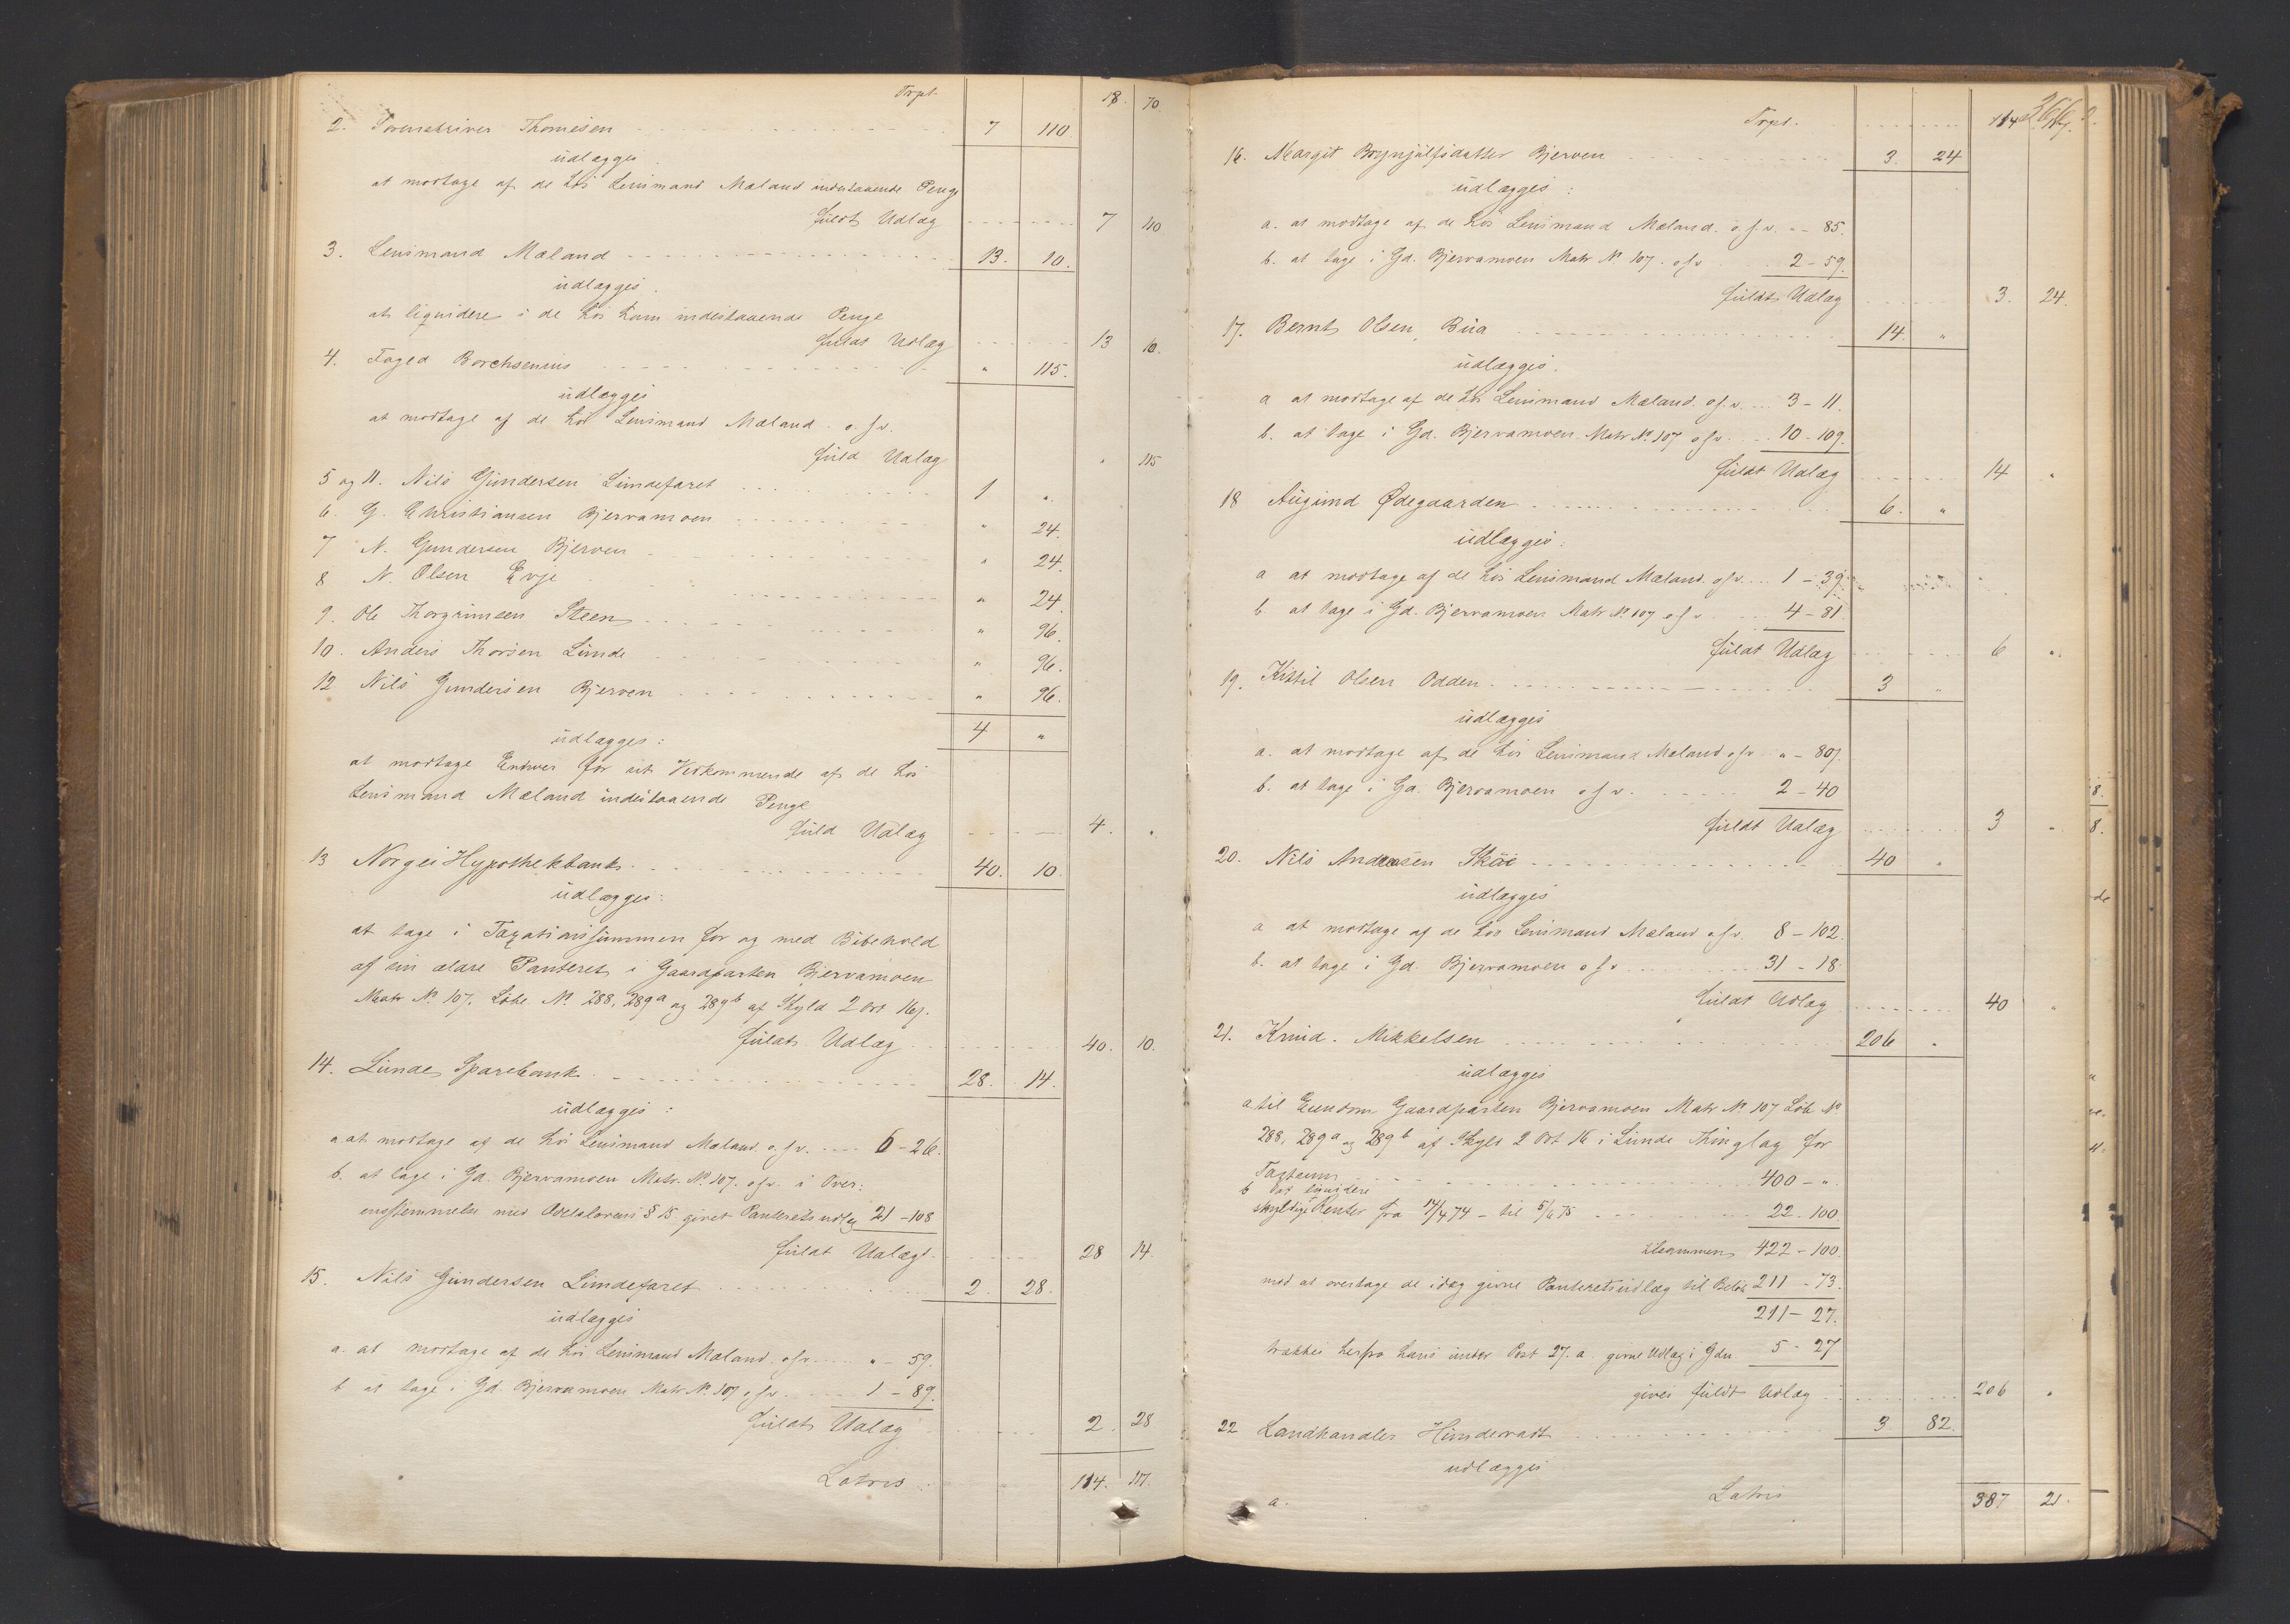 Trpt 18. 70
2. Sorenskriver Thomesen 7 110
udlægges
at modtage af de hos Lensmand Mæland indestaaende Penge
fuldt Udlæg 7 110
3. Lensmand Mæland 13. 10.
udlægges.
at liquidere i de hos ham indestaaende Penge
fuldt Udlæg 13 10.
4. Foged Borchsenius " 115.
udlægges
at modtage af de hos Lensmand Mæland o.s.v.
fuld Udlæg " 115
5 og 11. Nils Gundersen Lundefaret 1 ".
6. G. Christiansen Bjervamoen " 24.
7 N. Gundersen Bjerven " 24.
8 N. Olsen Evje " 24.
9. Ole Thorgrimsen Steen " 96.
10. Anders Thorsen Lunde " 96.
12 Nils Gundersen Bjerven " 96.
4 "
udlægges:
at modtage Enhver for sit Vedkommende af de hos
Lensmand Mæland indestaaende Penge
fuld Udlæg 4. "
13 Norges Hypothekbank 40. 10
udlægges:
at tage i Taxationssummen for og med Bibehold
af sin ældre Panteret i Gaardparten Bjervamoen
Matr No 107. Løbe No 288, 289a og 289b af Skyld 2 Ort 16 s.
fuldt Udlæg 40. 10.
14. Lunde Sparebank 28. 14.
udlægges:
a at modtage af de hos Lensmand Mæland o.s.v. 6 - 26.
b. at tage i Gd. Bjervamoen Matr. No 107. osv. i Over:
ensstemmelse med Odelslovens § 15 givet Panteretsudlæg 21 - 108
fuldt Udlægt 28 14.
15. Nils Gundersen Lundefaret 2. 28.
udlægges
a. at modtage af de hos Lensmand Mæland osv " - 59.
b at tage i Gd. Bjervamoen Matr No. 107 osv. 1 - 89.
fuldt Udlæg 2. 28
Latris 114. 117.
Trpt. 114 117.
366
16. Margit Brynjulfsdatter Bjerven 3. 24
udlægges:
a. at modtage af de hos Lensmand Mæland. o.s.v. " - 85.
b. at tage i Gd. Bjervamoen Matr No 107. osv 2 - 59.
fuldt Udlæg 3. 24.
17. Bernt Olsen Bua 14. "
udlægges.
a at modtage af de hos Lensmand Mæland. osv. 3 - 11.
b. at tage i Gd. Bjervamoen Matr No 107 osv. 10 - 109.
fuldt Udlæg 14 "
18 Augund Ødegaarden 6. "
udlægges:
a at modtage af de hos Lensmand Mæland. osv. 1 - 39.
b. at tage i Gd. Bjervamoen Matr No 107 osv 4 - 81.
fuldt Udlæg 6 "
19. Kittil Olsen Odden 3 "
udlægges
a. at modtage af de hos Lensmand Mæland osv " - 80.
b. at tage i Gd. Bjervamoen osv. 2 - 40
fuldt Udlæg 3 "
20. Nils Andersen Skoe 40 "
udlægges
a at modtage af de hos Lensmand Mæland osv. 8 - 102.
b. at tage i Gd. Bjervamoen osv 31 - 18.
fuldt Udlæg 40 "
21. Knud. Mikkelsen 206 "
udlægges
a til Eiendom Gaardparten Bjervamoen Matr No 107 Løbe No
288, 289a og 289b af Skyld 2 Ort 16 i Lunde Thinglag for
Taxtsum 400 - ".
b
skyldige Renter fra 17/4 74 - til 5/6 75 22 - 100
tilsammen 422 - 100.
mod at overtage de idag givne Panteretsudlæg til Beløb 211 - 73.
211 - 27.
trækkes herfra hans under Post 27. a. givne Udlæg i Gdn. 5 - 27
gives fuldt Udlæg 206 "
22 Landhandler Hundevadt 3 82.
udlægges
a. Latris 387 21.